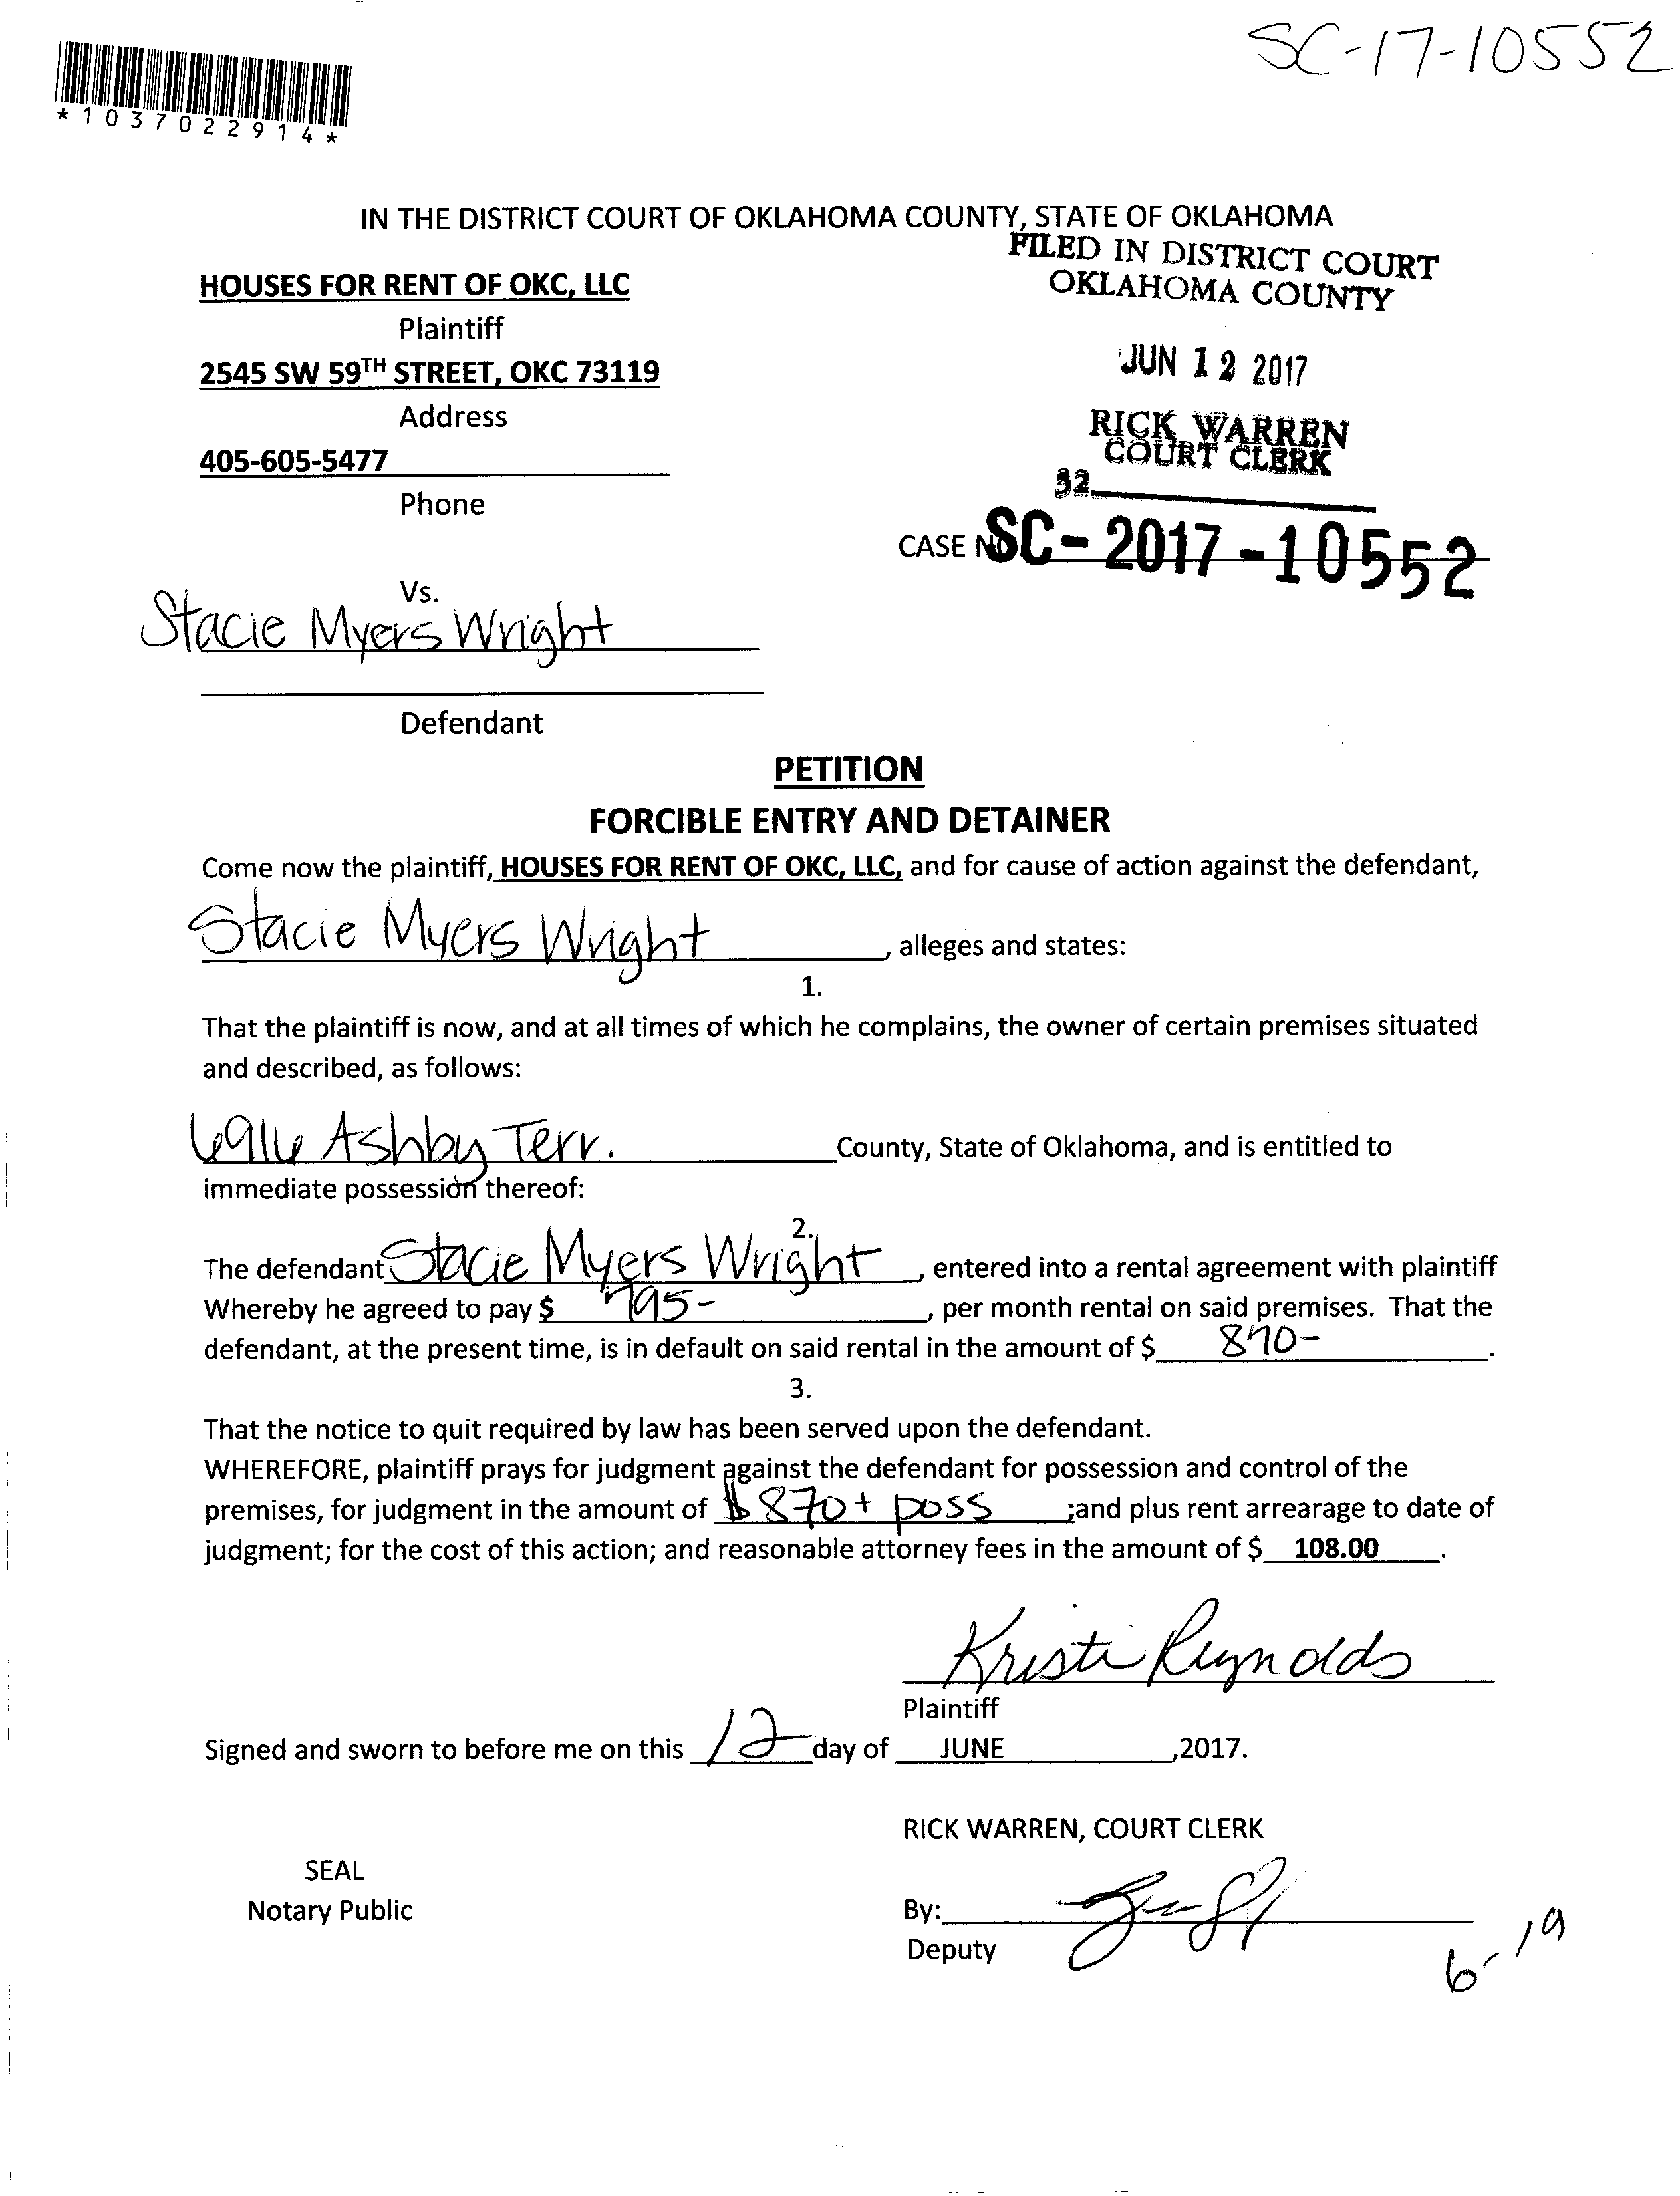 SC-17-10552
*1037022914*
IN THE DISTRICT COURT OF OKLAHOMA COUNTY, STATE OF OKLAHOMA
FILED IN DISTRICT COURT
OKLAHOMA COUNTY
HOUSES FOR RENT OF OKC, LLC
Plaintiff
2545 SW 59TH STREET, OKC 73119
JUN 12 2017
Address
RICK WARREN
COURT CLERK
405-605-5477
32
Phone
CASE NO SC-2017-10552
Vs.
Stacie Myers Wright
Defendant
PETITION
FORCIBLE ENTRY AND DETAINER
Come now the plaintiff, HOUSES FOR RENT OF OKC, LLC, and for cause of action against the defendant,
Stacie Myers Wright, alleges and states:
1.
That the plaintiff is now, and at all times of which he complains, the owner of certain premises situated
and described, as follows:
6916 Ashby Terr. County, State of Oklahoma, and is entitled to
immediate possession thereof:
2.
The defendant Stacie Myers Wright, entered into a rental agreement with plaintiff
Whereby he agreed to pay $ 795-, per month rental on said premises. That the
defendant, at the present time, is in default on said rental in the amount of $ 870-.
3.
That the notice to quit required by law has been served upon the defendant.
WHEREFORE, plaintiff prays for judgment against the defendant for possession and control of the
premises, for judgment in the amount of $870+ poss ;and plus rent arrearage to date of
judgment; for the cost of this action; and reasonable attorney fees in the amount of $ 108.00.
Kristi Reynolds
Plaintiff
Signed and sworn to before me on this 12 day of JUNE ,2017.
RICK WARREN, COURT CLERK
SEAL
Notary Public
By:
Deputy
6-19